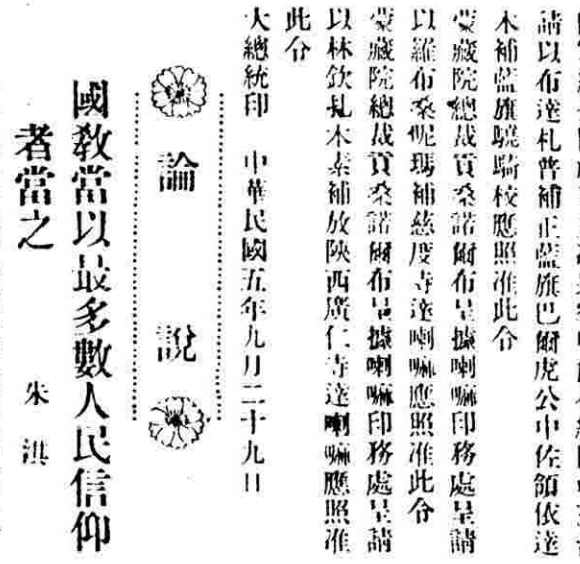 請以布達札普補正藍旗巴爾虎公中佐領依達
木補藍旗驍騎校應照准此令
蒙藏院總裁貢桑諾爾布呈據喇嘛印務處呈請
以羅布桑呢瑪補慈度寺達喇嘛應照准此令
蒙藏院總裁貢桑諾爾布呈據喇嘛印務處呈請
以林欽札木素補放陝西廣仁寺達喇嘛應照准
此令
大總統印 中華民國五年九月二十九日
論說
國教當以最多數人民信仰
者當之
朱淇